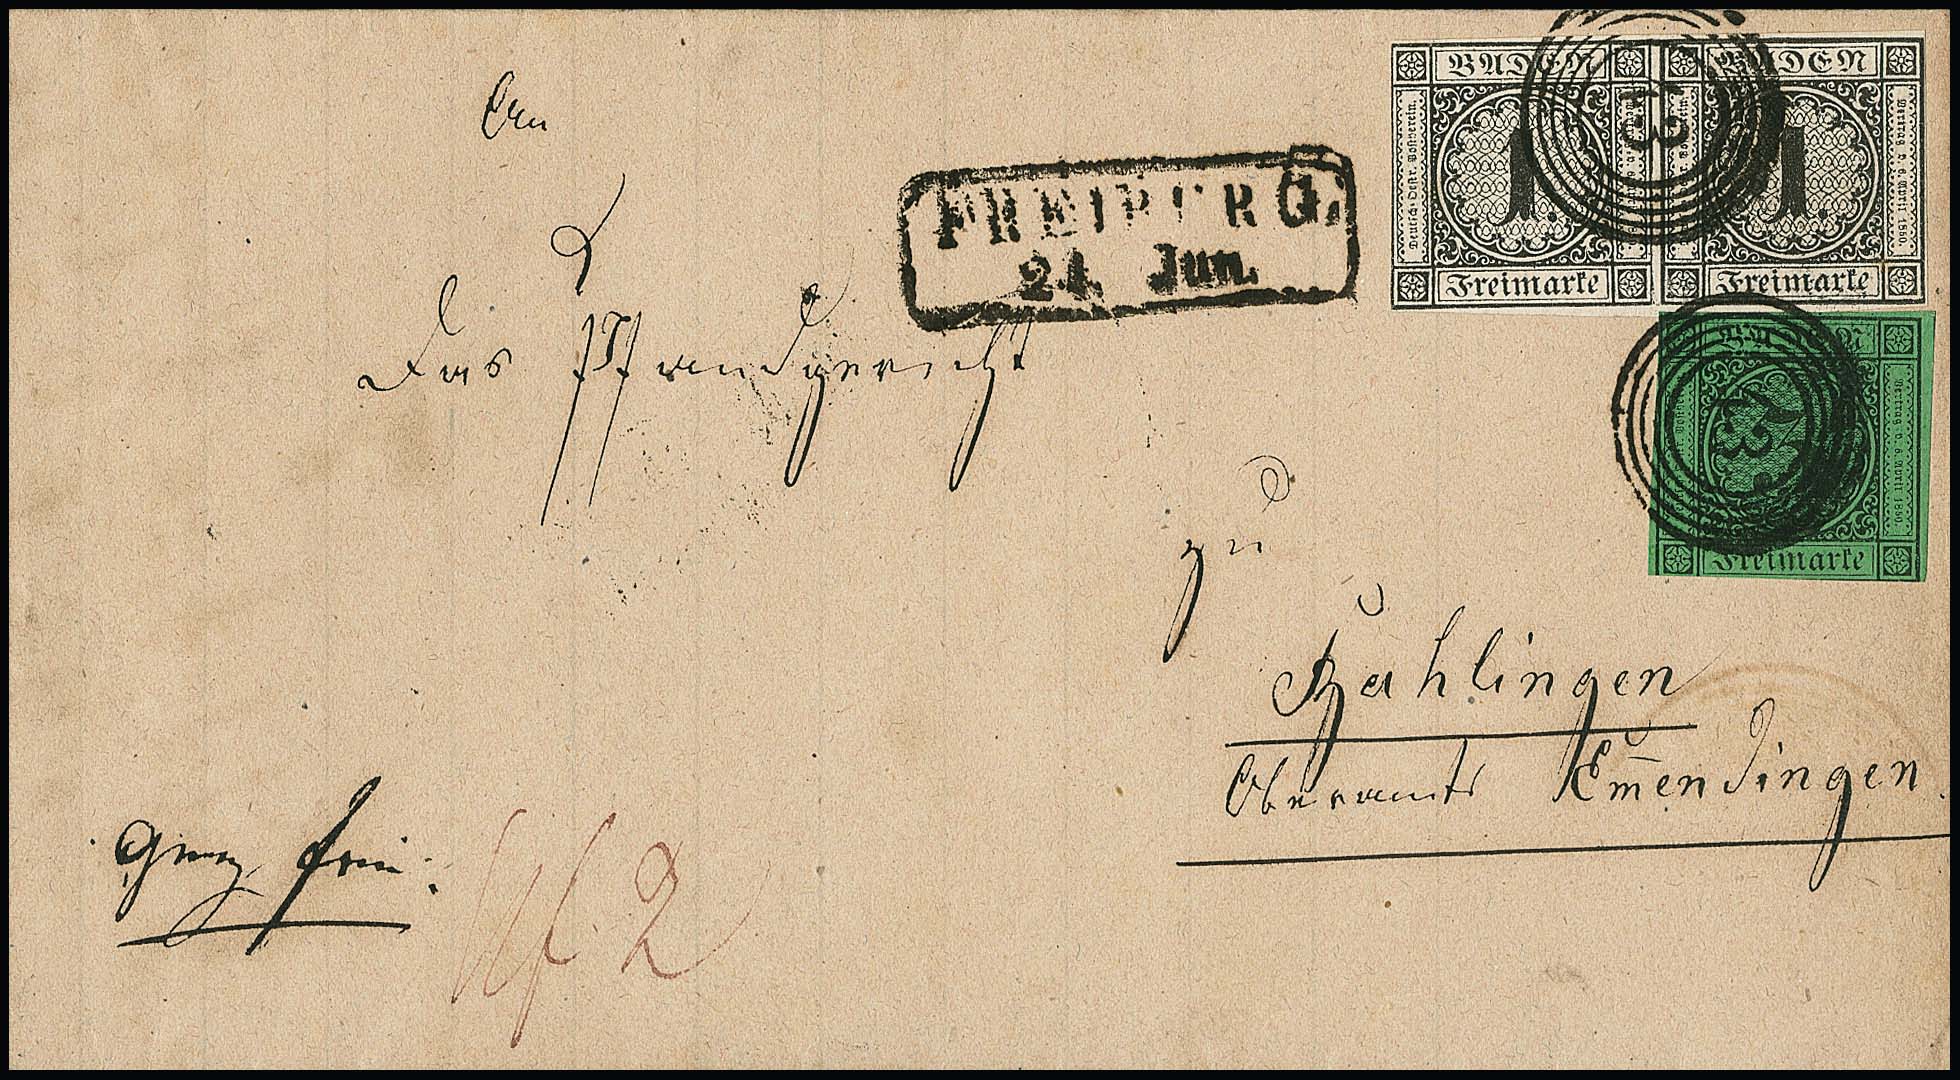 An
Das Pfandgericht
zu
Bahlingen
Oberamts Em̅endingen
Ganz frei.
2
FREIBURG.
24 Jun.
BADEN BADEN
Deutsch-Oestr. Postverein. Vertrag v. 6 April 1850.
1. 1.
43
Freimarke Freimarke
43
Vertrag v. 6. April 1850.
Freimarke